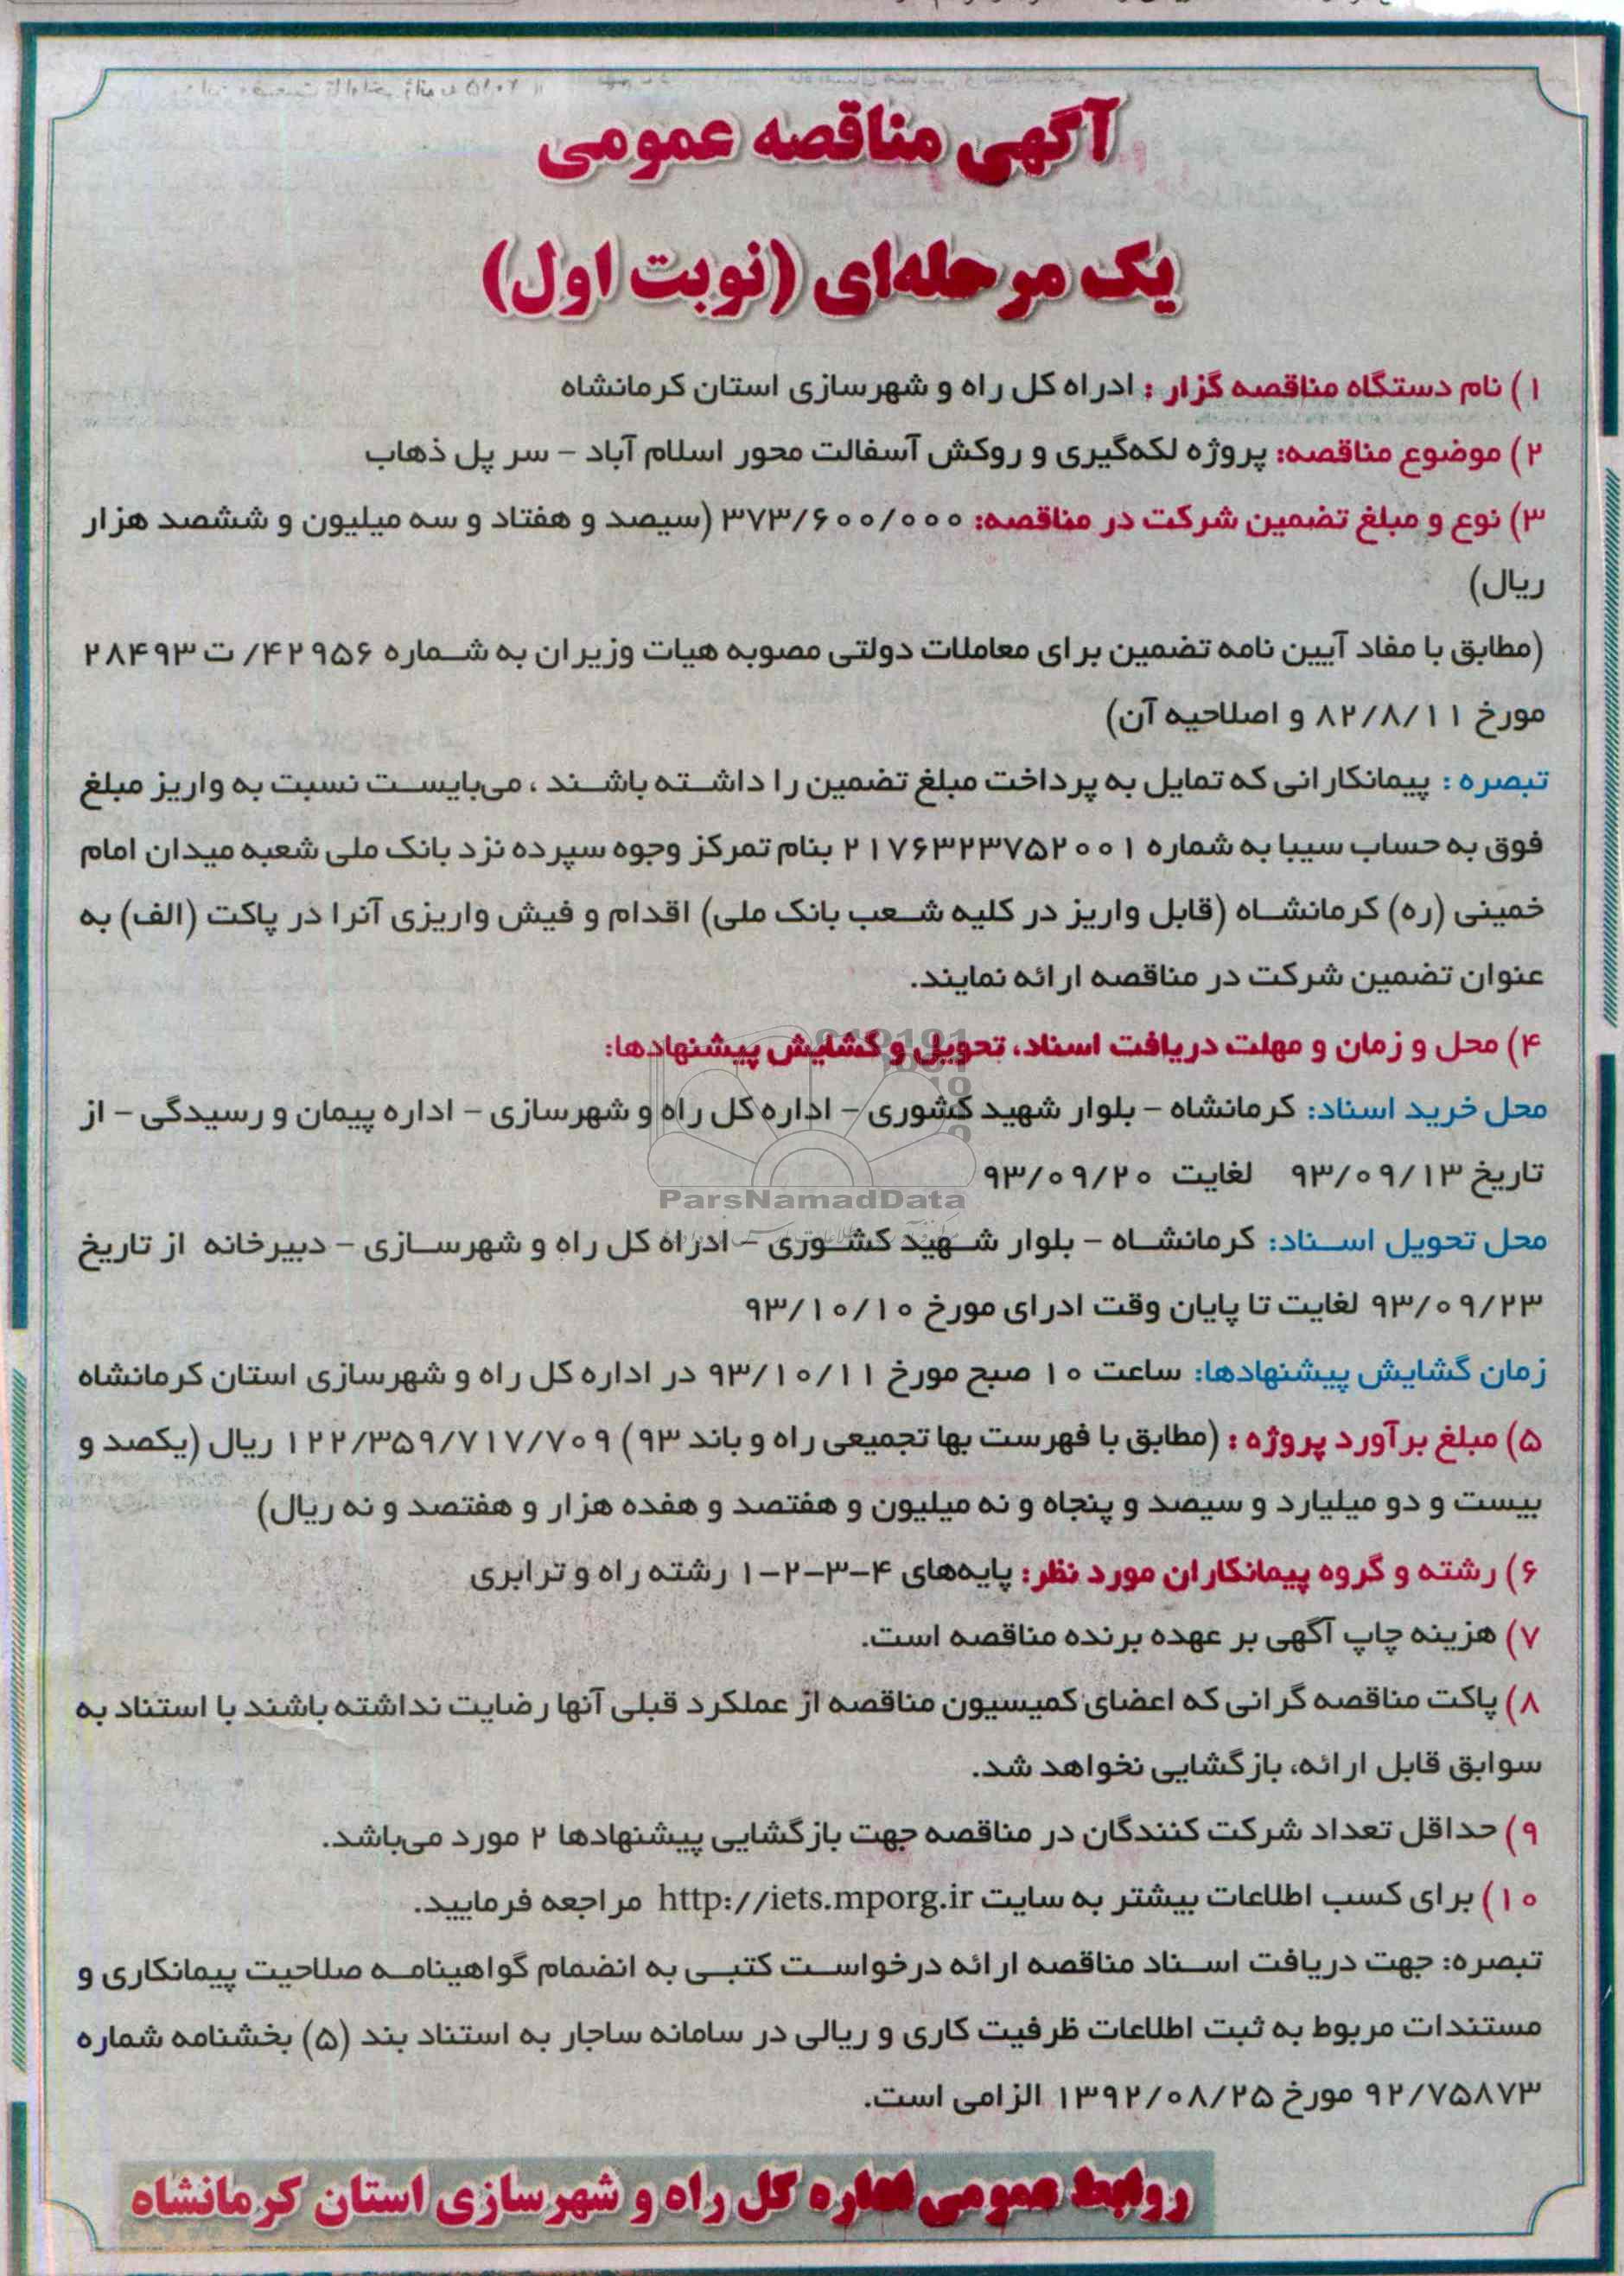 آگهی مناقصه عمومی
یک مرحله‌ای (نوبت اول)
۱) نام دستگاه مناقصه گزار : ادراه کل راه و شهرسازی استان کرمانشاه
۲) موضوع مناقصه: پروژه لکه‌گیری و روکش آسفالت محور اسلام آباد – سر پل ذهاب
۳) نوع و مبلغ تضمین شرکت در مناقصه: ۳۷۳/۶۰۰/۰۰۰ (سیصد و هفتاد و سه میلیون و ششصد هزار
ریال)
(مطابق با مفاد آیین نامه تضمین برای معاملات دولتی مصوبه هیات وزیران به شماره ۴۲۹۵۶/ ت ۲۸۴۹۳
مورخ ۸۲/۸/۱۱ و اصلاحیه آن)
تبصره : پیمانکارانی که تمایل به پرداخت مبلغ تضمین را داشته باشند ، می‌بایست نسبت به واریز مبلغ
فوق به حساب سیبا به شماره ۲۱۷۶۳۲۳۷۵۲۰۰۱ بنام تمرکز وجوه سپرده نزد بانک ملی شعبه میدان امام
خمینی (ره) کرمانشاه (قابل واریز در کلیه شعب بانک ملی) اقدام و فیش واریزی آنرا در پاکت (الف) به
عنوان تضمین شرکت در مناقصه ارائه نمایند.
۴) محل و زمان و مهلت دریافت اسناد، تحویل و گشایش پیشنهادها:
محل خرید اسناد: کرمانشاه – بلوار شهید کشوری – اداره کل راه و شهرسازی – اداره پیمان و رسیدگی – از
تاریخ ۹۳/۰۹/۱۳ لغایت ۹۳/۰۹/۲۰
ParsNamadData
محل تحویل اسناد: کرمانشاه – بلوار شهید کشوری – ادراه کل راه و شهرسازی – دبیرخانه از تاریخ
۹۳/۰۹/۲۳ لغایت تا پایان وقت ادرای مورخ ۹۳/۱۰/۱۰
زمان گشایش پیشنهادها: ساعت ۱۰ صبح مورخ ۹۳/۱۰/۱۱ در اداره کل راه و شهرسازی استان کرمانشاه
۵) مبلغ برآورد پروژه : (مطابق با فهرست بها تجمیعی راه و باند ۹۳) ۱۲۲/۳۵۹/۷۱۷/۷۰۹ ریال (یکصد و
بیست و دو میلیارد و سیصد و پنجاه و نه میلیون و هفتصد و هفده هزار و هفتصد و نه ریال)
۶) رشته و گروه پیمانکاران مورد نظر: پایه‌های ۴-۳-۲-۱ رشته راه و ترابری
۷) هزینه چاپ آگهی بر عهده برنده مناقصه است.
۸) پاکت مناقصه گرانی که اعضای کمیسیون مناقصه از عملکرد قبلی آنها رضایت نداشته باشند با استناد به
سوابق قابل ارائه، بازگشایی نخواهد شد.
۹) حداقل تعداد شرکت کنندگان در مناقصه جهت بازگشایی پیشنهادها ۲ مورد می‌باشد.
۱۰) برای کسب اطلاعات بیشتر به سایت http://iets.mporg.ir مراجعه فرمایید.
تبصره: جهت دریافت اسناد مناقصه ارائه درخواست کتبی به انضمام گواهینامه صلاحیت پیمانکاری و
مستندات مربوط به ثبت اطلاعات ظرفیت کاری و ریالی در سامانه ساجار به استناد بند (۵) بخشنامه شماره
۹۲/۷۵۸۷۳ مورخ ۱۳۹۲/۰۸/۲۵ الزامی است.
روابط عمومی اداره کل راه و شهرسازی استان کرمانشاه